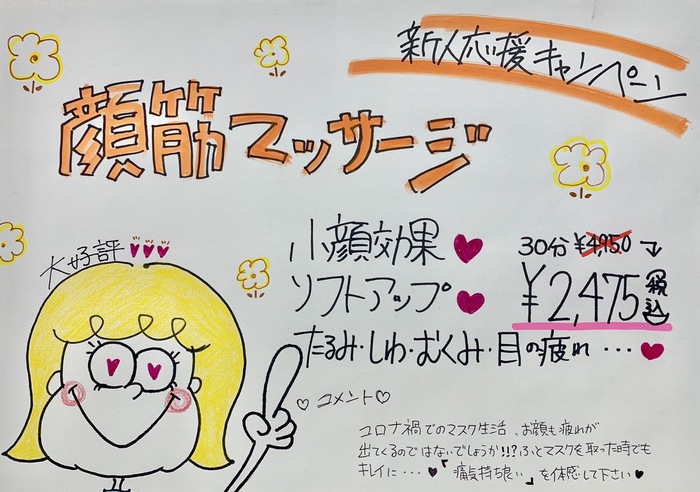 新人応援キャンペーン
顔筋マッサージ
大好評
小顔効果
30分 ¥4,950
ソフトアップ
¥2,475 税込
たるみ・しわ・むくみ・目の疲れ・・・
コメント
コロナ禍でのマスク生活、お顔も疲れが
出てくるのではないでしょうか!!?ふとマスクを取った時でも
キレイに・・・「痛気持ち良い」を体感して下さい